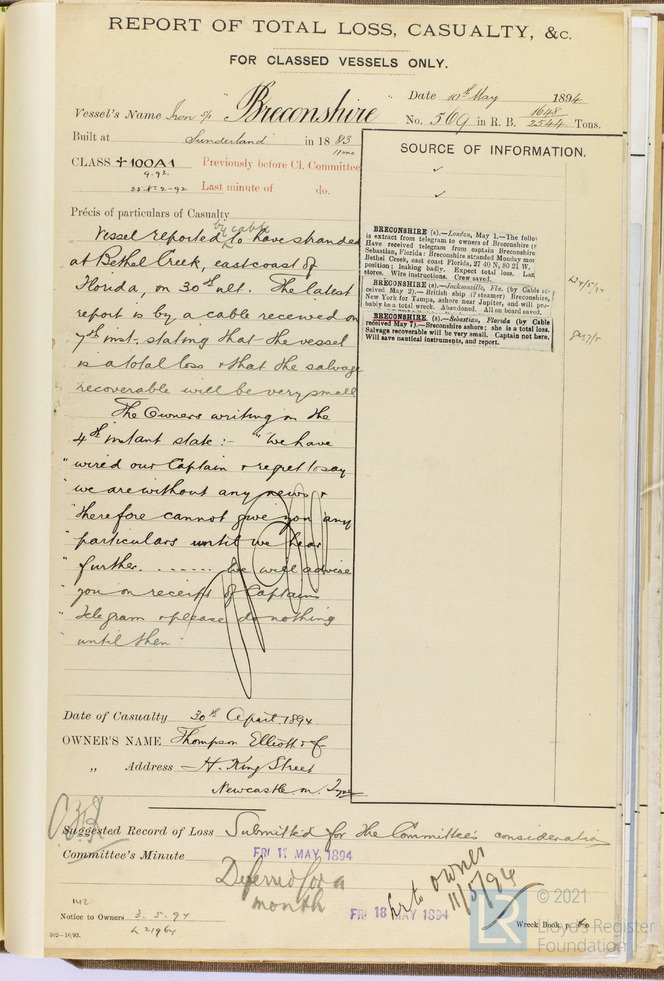 REPORT OF TOTAL LOSS, CASUALTY, &c.
FOR CLASSED VESSELS ONLY.
Date 10th May 1894
Vessel's Name Iron s/s "Breconshire
No. 569 in R. B. 1648 / 2544 Tons.
Built at Sunderland in 1883
11mo
CLASS +100A1 Previously before Cl. Committee
9.93.
2-92 Last minute of do.
Précis of particulars of Casualty
by cable
Vessel reported to have stranded
at Bethel Creek, east coast of
Florida, on 30th ult. The latest
report is by a cable received on
7th inst. stating that the vessel
is a total loss & that the salvage
recoverable will be very small
The Owners writing on the
4th instant state:- "We have
"wired our Captain & regret to say
"we are without any news &
"therefore cannot give you any
"particulars until we hear
"further. ....... We will advise
"you on receipt of Captains
"telegram & please do nothing
"until then
SOURCE OF INFORMATION.
BRECONSHIRE (s).—London, May 1.—The follow
is extract from telegram to owners of Breconshire (s
Have received telegram from captain Breconshire
Sebastian, Florida: Breconshire stranded Monday mor
Bethel Creek, east coast Florida, 27 40 N, 80 21 W.
position; leaking badly. Expect total loss. Lan
stores. Wire instructions. Crew saved.
BRECONSHIRE (s).—Jacksonville, Fla. (by Cable re-
ceived May 2).—British ship (? steamer) Breconshire,
New York for Tampa, ashore near Jupiter, and will pro-
bably be a total wreck. Abandoned. All on board saved.
BRECONSHIRE (s).—Sebastian, Florida (by Cable
received May 7).—Breconshire ashore; she is a total loss.
Salvage recoverable will be very small. Captain not here.
Will save nautical instruments, and report.
Date of Casualty 30th April 1894
OWNER'S NAME Thompson Elliott & Co
" Address King Street
Newcastle on Tyne
Suggested Record of Loss Submitted for the Committee's consideration
Committee's Minute FRI 11 MAY 1894
Deferred for a
month
FRI 18 MAY 1894
Lr to Owner
11/5/94
142
Notice to Owners 3.5.94
L 21964
Wreck Book, p.
502—10,93.
© 2021
LR
Lloyd's Register
Foundation